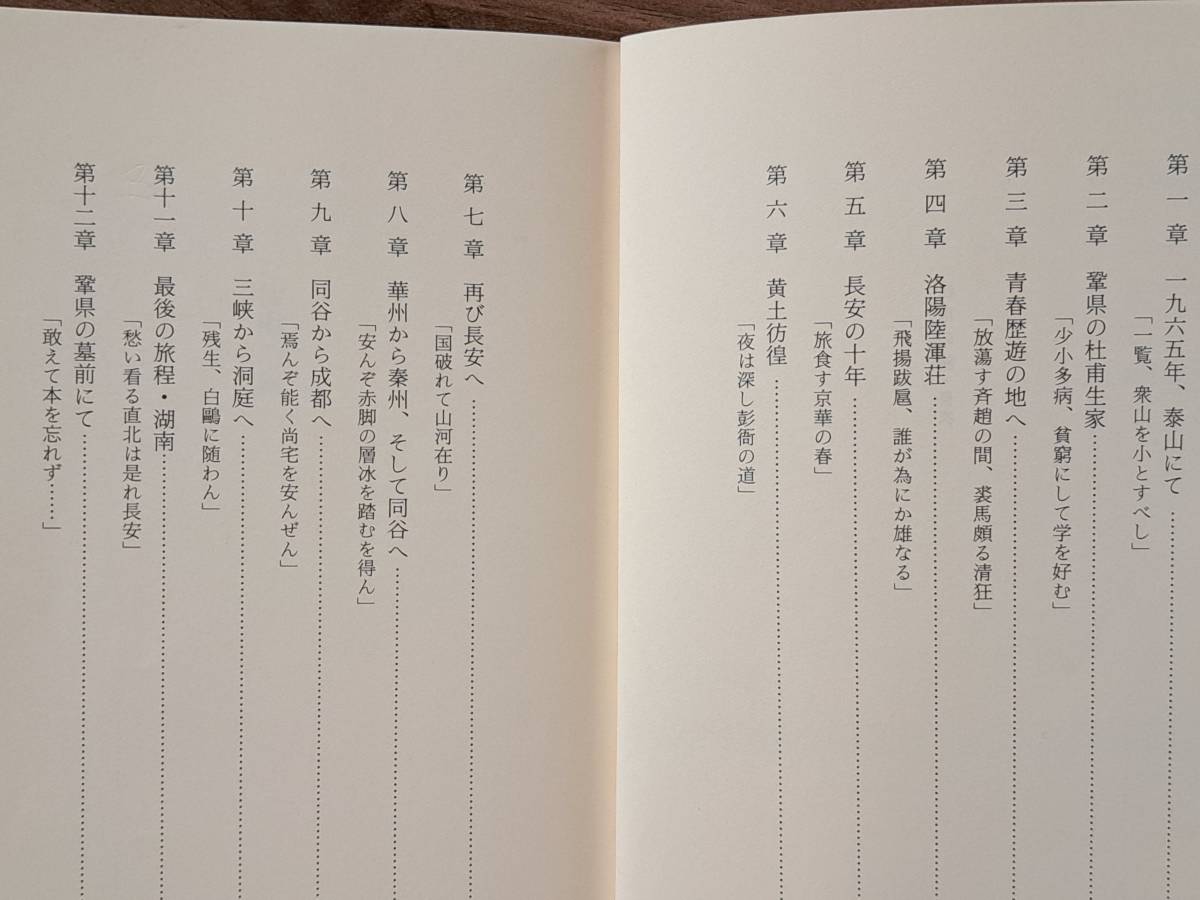 第一章　一九六五年、泰山にて……………………
「一覧、衆山を小とすべし」
第二章　鞏県の杜甫生家……………………
「少小多病、貧窮にして学を好む」
第三章　青春歴遊の地へ……………………
「放蕩す斉趙の間、裘馬頗る清狂」
第四章　洛陽陸渾荘……………………
「飛揚跋扈、誰が為にか雄なる」
第五章　長安の十年……………………
「旅食す京華の春」
第六章　黄土彷徨……………………
「夜は深し彭衙の道」
第七章　再び長安へ……………………
「国破れて山河在り」
第八章　華州から秦州、そして同谷へ……………………
「安んぞ赤脚の層冰を踏むを得ん」
第九章　同谷から成都へ……………………
「焉んぞ能く尚宅を安んぜん」
第十章　三峡から洞庭へ……………………
「残生、白鷗に随わん」
第十一章　最後の旅程・湖南……………………
「愁い看る直北は是れ長安」
第十二章　鞏県の墓前にて……………………
「敢えて本を忘れず……」